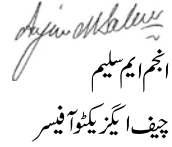 انجم ایم سلیم
چیف ایگزیکٹو آفیسر